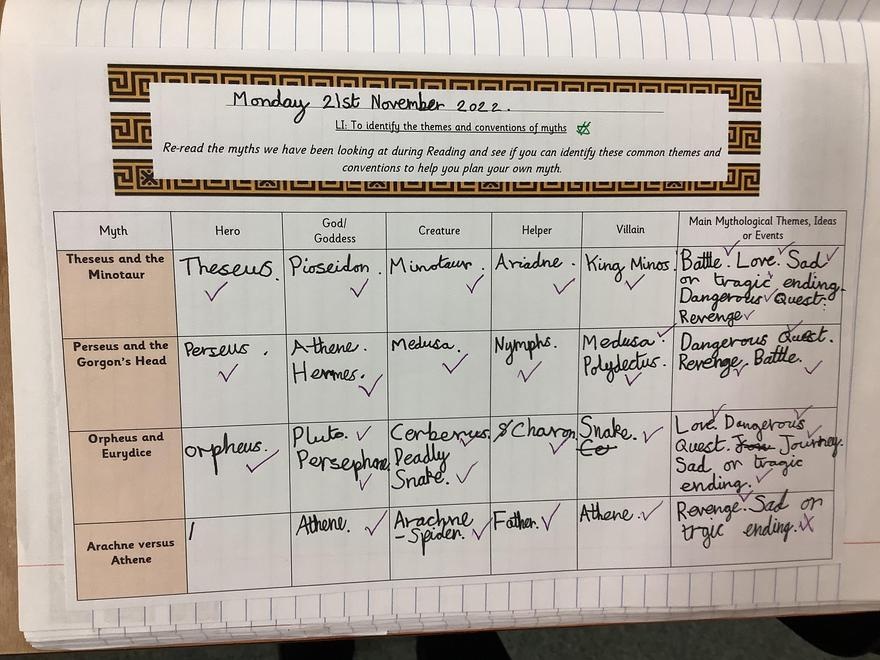 Monday 21st November 2022.
LI: To identify the themes and conventions of myths
Re-read the myths we have been looking at during Reading and see if you can identify these common themes and
conventions to help you plan your own myth.
Myth Hero God/ Goddess Creature Helper Villain Main Mythological Themes, Ideas or Events
Theseus and the
Minotaur
Theseus.
Pioseidon.
Minotaur.
Ariadne.
King Minos.
Battle. Love. Sad
or tragic ending.
Dangerous Quest.
Revenge
Perseus and the
Gorgon's Head
Perseus.
Athene.
Hermes.
Medusa.
Nymphs.
Medusa
Polydectus.
Dangerous Quest.
Revenge. Battle.
Orpheus and
Eurydice
orpheus.
Pluto.
Persephone
Cerberus.
Deadly
Snake.
Charon.
Snake.
Ce
Love. Dangerous
Quest. Journey.
Sad or tragic
ending.
Arachne versus
Athene
/
Athene.
Arachne
-Spider.
Father.
Athene.
Revenge. Sad or
trgic ending.